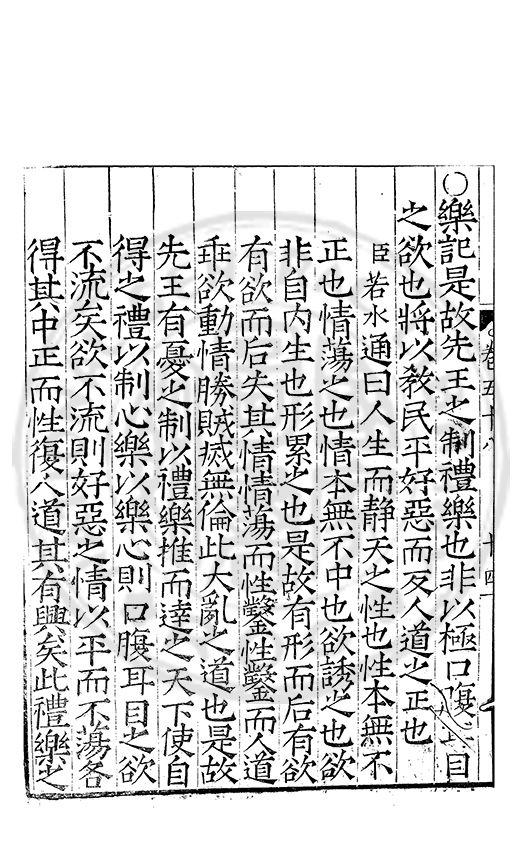 ○樂記是故先王之制禮樂也非以極口腹耳目
之欲也將以敎民平好惡而反人道之正也
臣若水通曰人生而静天之性也性本無不
正也情蕩之也情本無不中也欲誘之也欲
非自内生也形累之也是故有形而后有欲
有欲而后失其情情蕩而性鑿性鑿而人道
乖欲動情勝賊滅無倫此大亂之道也是故
先王有憂之制以禮樂推而達之天下使自
得之禮以制心樂以樂心則口腹耳目之欲
不流矣欲不流則好惡之情以平而不蕩各
得其中正而性復人道其有興矣此禮樂之
卷五十八
十四